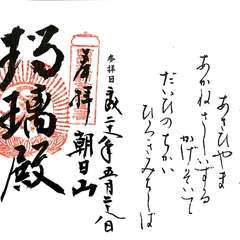 あさひやま
あかねさしいずる
かげそいて
だいひのちかい
ひろきみしば
参拝日
年五月 八日
奉拝 朝日山
瑠璃殿